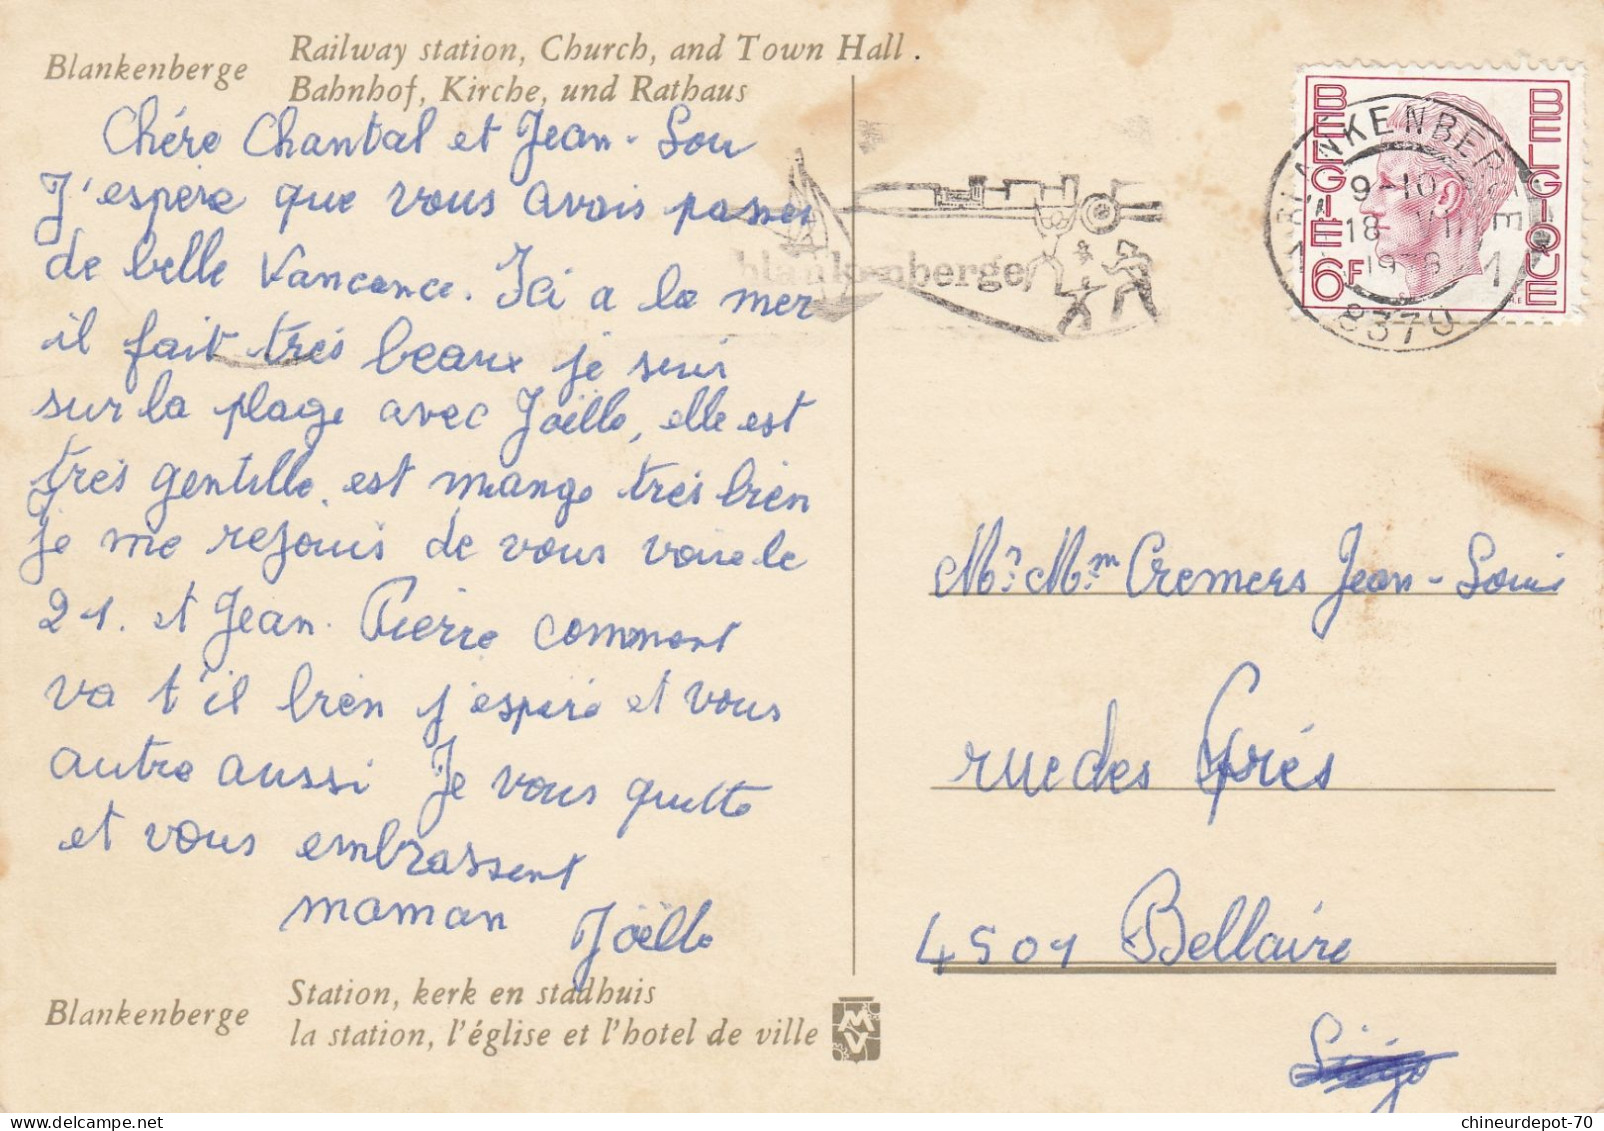 Blankenberge
Railway station, Church, and Town Hall.
Bahnhof, Kirche, und Rathaus
Chére Chantal et Jean-Lou
J'espére que vous avais passer
de belle Vancance. Ici a la mer
il fait trés beaux je suis
sur la plage avec Joëlle, elle est
trés gentille. est mange trés bien
je me rejouis de vous voire le
21. et Jean-Pierre comment
va t'il bien j'espére et vous
autre aussi Je vous quitte
et vous embrassent
maman
Joëlle
Blankenberge
Station, kerk en stadhuis
la station, l'église et l'hotel de ville
MV
blankenberge
BELGIE
BELGIQUE
6F
BLANKENBERGE
9-10
18
1978
1
8370
Mr. Mm Cremers Jean-Louis
rue des Grés
4501 Bellaire
chineurdepot-70